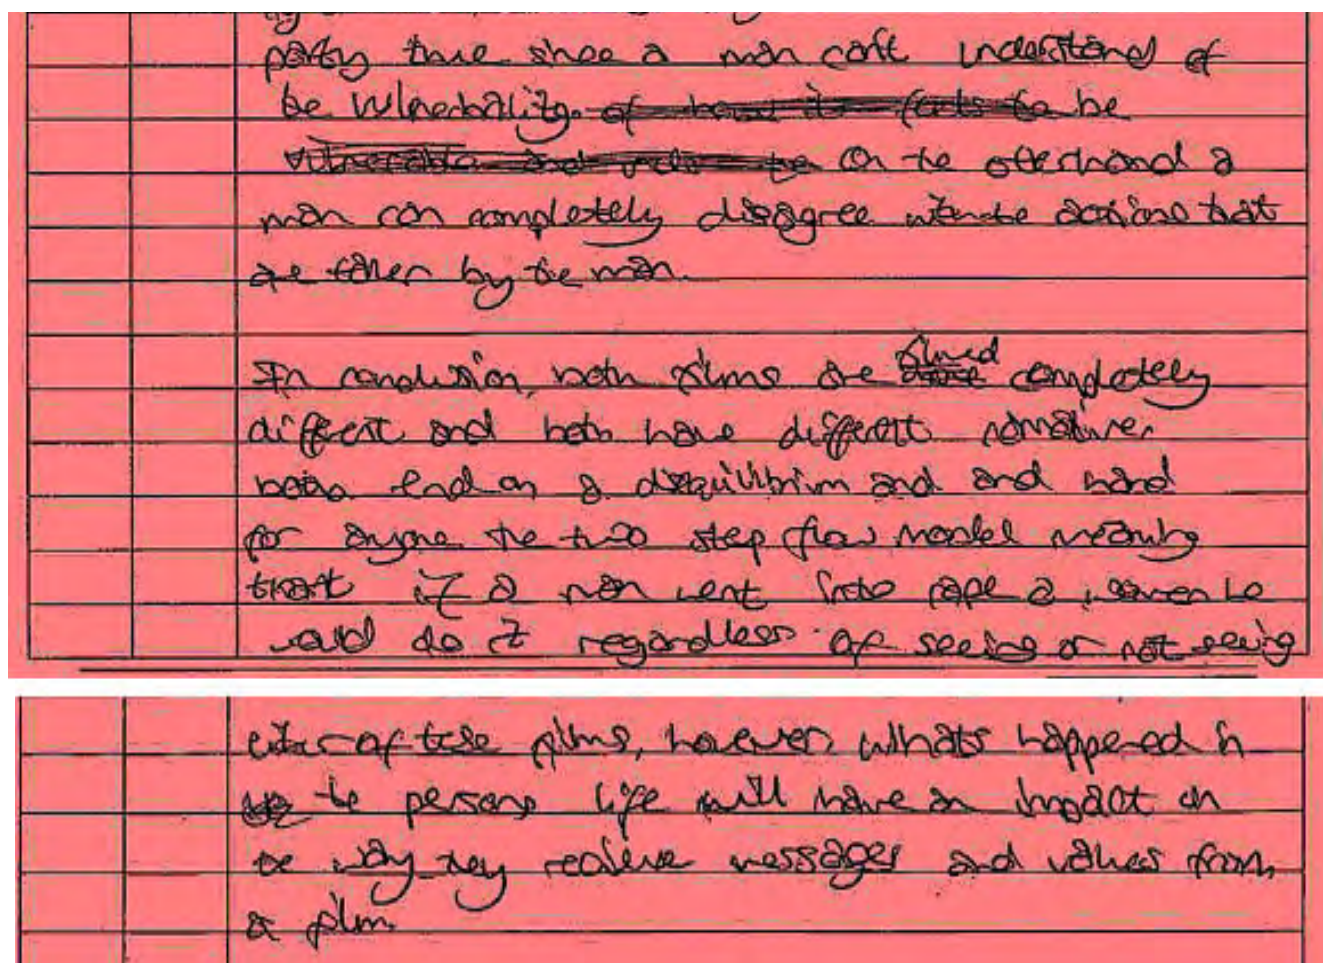 partly true since a man can't understand of
the vulnerbality. of how it feels to be
vulnerable and on the otherhand a
man can completely disagree with the actions that
are taken by the man.
In conclusion, both films are filmed completely
different and both have different narratives
both end on a disequilibrium and and hard
for anyone the two step flow model meaning
that if a man went into rape a women he
would do it regardless of seeing or not seeing
either of these films, however, whats happened in
the persons life will have an impact on
the way they recieve messages and values from
a film.